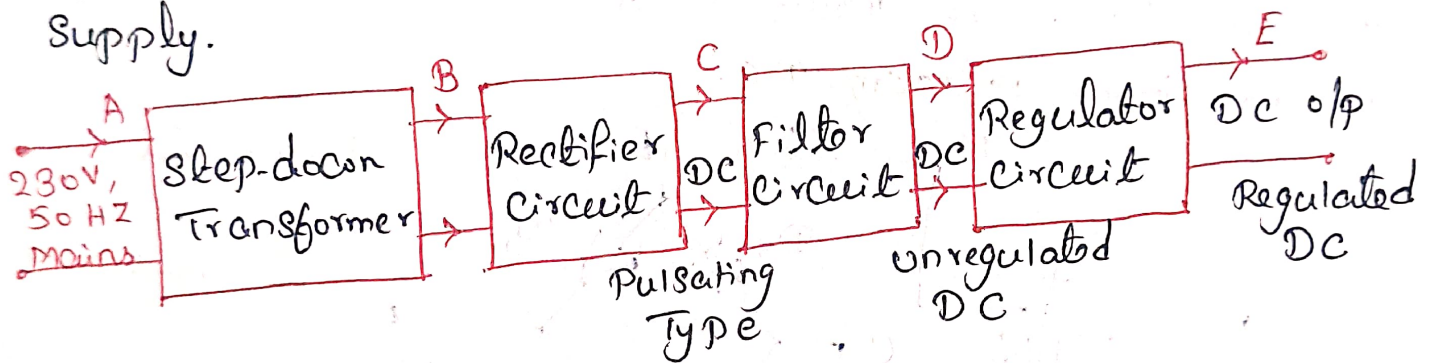 Supply.
A
230V,
50 HZ
Mains
Step-down
Transformer
B
Rectifier
Circuit
C
DC
Pulsating
Type
Filter
Circuit
D
DC
unregulated
DC.
Regulator
Circuit
E
DC o/p
Regulated
DC